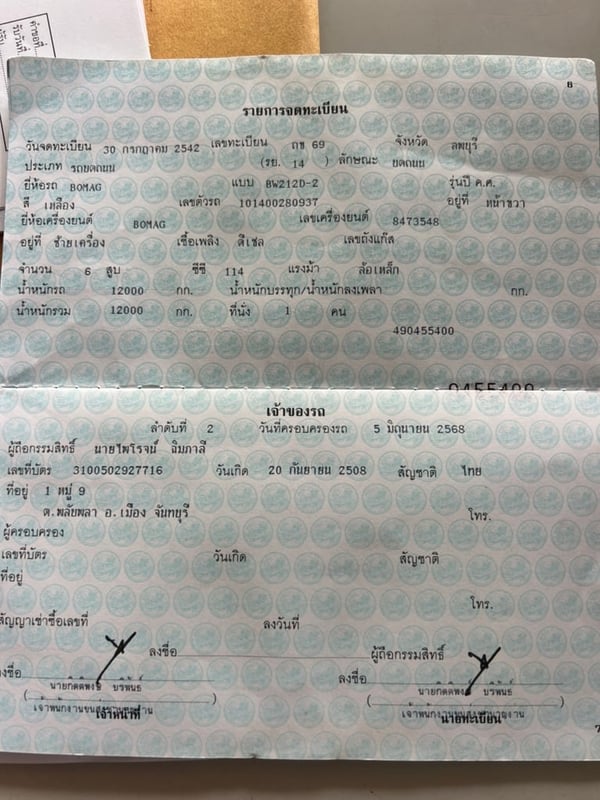 คำขอที่
รับวันที่
8
รายการจดทะเบียน
วันจดทะเบียน 30 กรกฎาคม 2542 เลขทะเบียน ถข 69 จังหวัด ลพบุรี
ประเภท รถบดถนน (รย. 14 ) ลักษณะ บดถนน
ยี่ห้อรถ BOMAG แบบ BW212D-2 รุ่นปี ค.ศ.
สี เหลือง เลขตัวรถ 101400280937 อยู่ที่ หน้าขวา
ยี่ห้อเครื่องยนต์ BOMAG เลขเครื่องยนต์ 8473548
อยู่ที่ ซ้ายเครื่อง เชื้อเพลิง ดีเซล เลขถังแก๊ส
จำนวน 6 สูบ ซีซี 114 แรงม้า ล้อเหล็ก
น้ำหนักรถ 12000 กก. น้ำหนักบรรทุก/น้ำหนักลงเพลา กก.
น้ำหนักรวม 12000 กก. ที่นั่ง 1 คน
490455400
เจ้าของรถ
ลำดับที่ 2 วันที่ครอบครองรถ 5 มิถุนายน 2568
ผู้ถือกรรมสิทธิ์ นายไพโรจน์ ฉิมภาลี
เลขที่บัตร 3100502927716 วันเกิด 20 กันยายน 2508 สัญชาติ ไทย
ที่อยู่ 1 หมู่ 9
ต.พลับพลา อ.เมือง จันทบุรี โทร.
ผู้ครอบครอง
เลขที่บัตร วันเกิด สัญชาติ
ที่อยู่
โทร.
สัญญาเช่าซื้อเลขที่ ลงวันที่
ลงชื่อ ผู้ถือกรรมสิทธิ์
ลงชื่อ ลงชื่อ
บริพันธ์ บริพันธ์
( ) ( )
เจ้าหน้าที่ นายทะเบียน
7